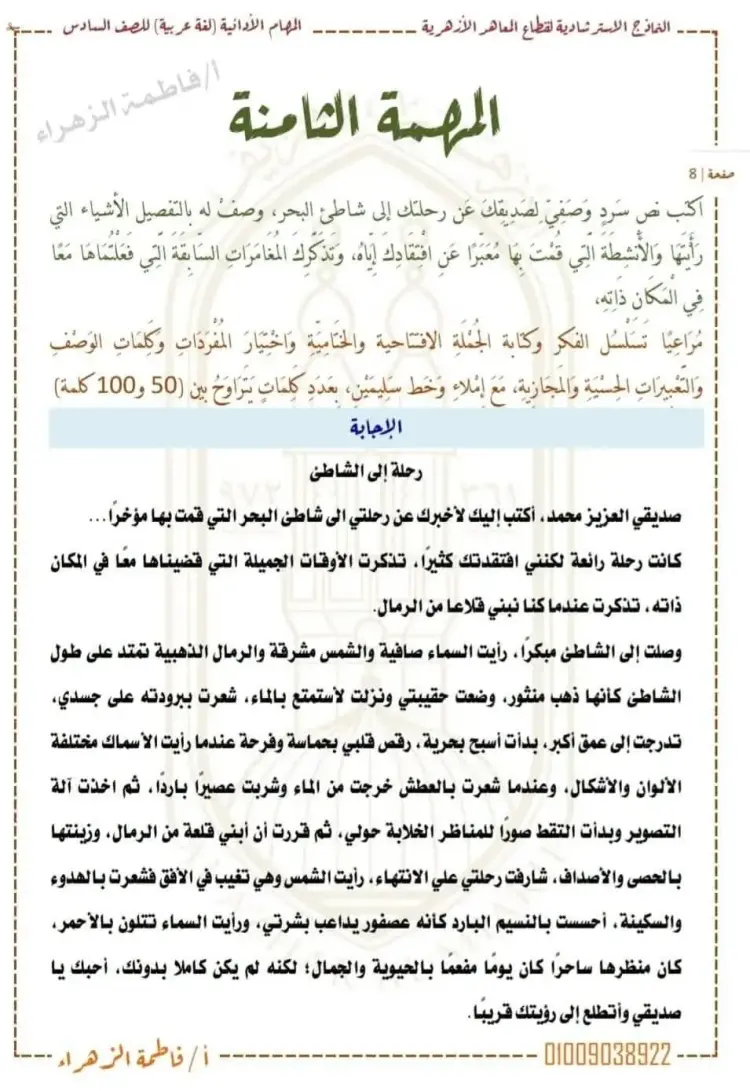 النماذج الاسترشادية لقطاع المعاهد الأزهرية
المهام الأدائية (لغة عربية) للصف السادس
أ/فاطمة الزهراء
المهمة الثامنة
صفحة | 8
اكتب نص سرد وَصَفِيّ لصَدِيقِكَ عَن رحلتك إلى شاطئ البحر، وصفْ له بالتفصيل الأشياء التي
رَأَيتَها وَالأَنشِطَةَ الَّتِي قُمْتَ بِهَا مُعَبِّرًا عَنِ افْتِقَادِكَ إِيَّاهُ، وَتَذَكُّرِكَ المُغَامَرَاتِ السَّابِقَةَ الَّتِي فَعَلْتُمَاهَا مَعًا
فِي الْمَكَانِ ذَاتِهِ،
مُرَاعِيًا تَسَلْسُلَ الفكر وكتابة الجُمْلَةِ الافتتاحية والختَامِيَّةِ وَاخْتِيَارَ المُفْرَدَاتِ وَكَلِمَاتِ الوَصْفِ
وَالتَّعْبِيرَاتِ الحِسْيَةِ وَالمَجَازِيةِ، مَعَ إِمْلاءٍ وَخَط سَلِيمَيْنِ، بِعَدَدِ كَلِمَاتٍ يَتَرَاوَحُ بين (50 و100 كلمة)
الإجابة
رحلة إلى الشاطئ
صديقي العزيز محمد، أكتب إليك لأخبرك عن رحلتي الى شاطئ البحر التي قمت بها مؤخرًا...
كانت رحلة رائعة لكنني افتقدتك كثيرًا، تذكرت الأوقات الجميلة التي قضيناها معًا في المكان
ذاته، تذكرت عندما كنا نبني قلاعا من الرمال.
وصلت إلى الشاطئ مبكرًا، رأيت السماء صافية والشمس مشرقة والرمال الذهبية تمتد على طول
الشاطئ كأنها ذهب منثور، وضعت حقيبتي ونزلت لأستمتع بالماء، شعرت ببرودته على جسدي،
تدرجت إلى عمق أكبر، بدأت أسبح بحرية، رقص قلبي بحماسة وفرحة عندما رأيت الأسماك مختلفة
الألوان والأشكال، وعندما شعرت بالعطش خرجت من الماء وشربت عصيرًا باردًا، ثم اخذت آلة
التصوير وبدأت التقط صورًا للمناظر الخلابة حولي، ثم قررت أن أبني قلعة من الرمال، وزينتها
بالحصى والأصداف، شارفت رحلتي علي الانتهاء، رأيت الشمس وهي تغيب في الأفق فشعرت بالهدوء
والسكينة، أحسست بالنسيم البارد كأنه عصفور يداعب بشرتي، ورأيت السماء تتلون بالأحمر،
كان منظرها ساحرًا كان يومًا مفعمًا بالحيوية والجمال؛ لكنه لم يكن كاملا بدونك، أحبك يا
صديقي وأتطلع إلى رؤيتك قريبًا.
أ/ فاطمة الزهراء
01009038922